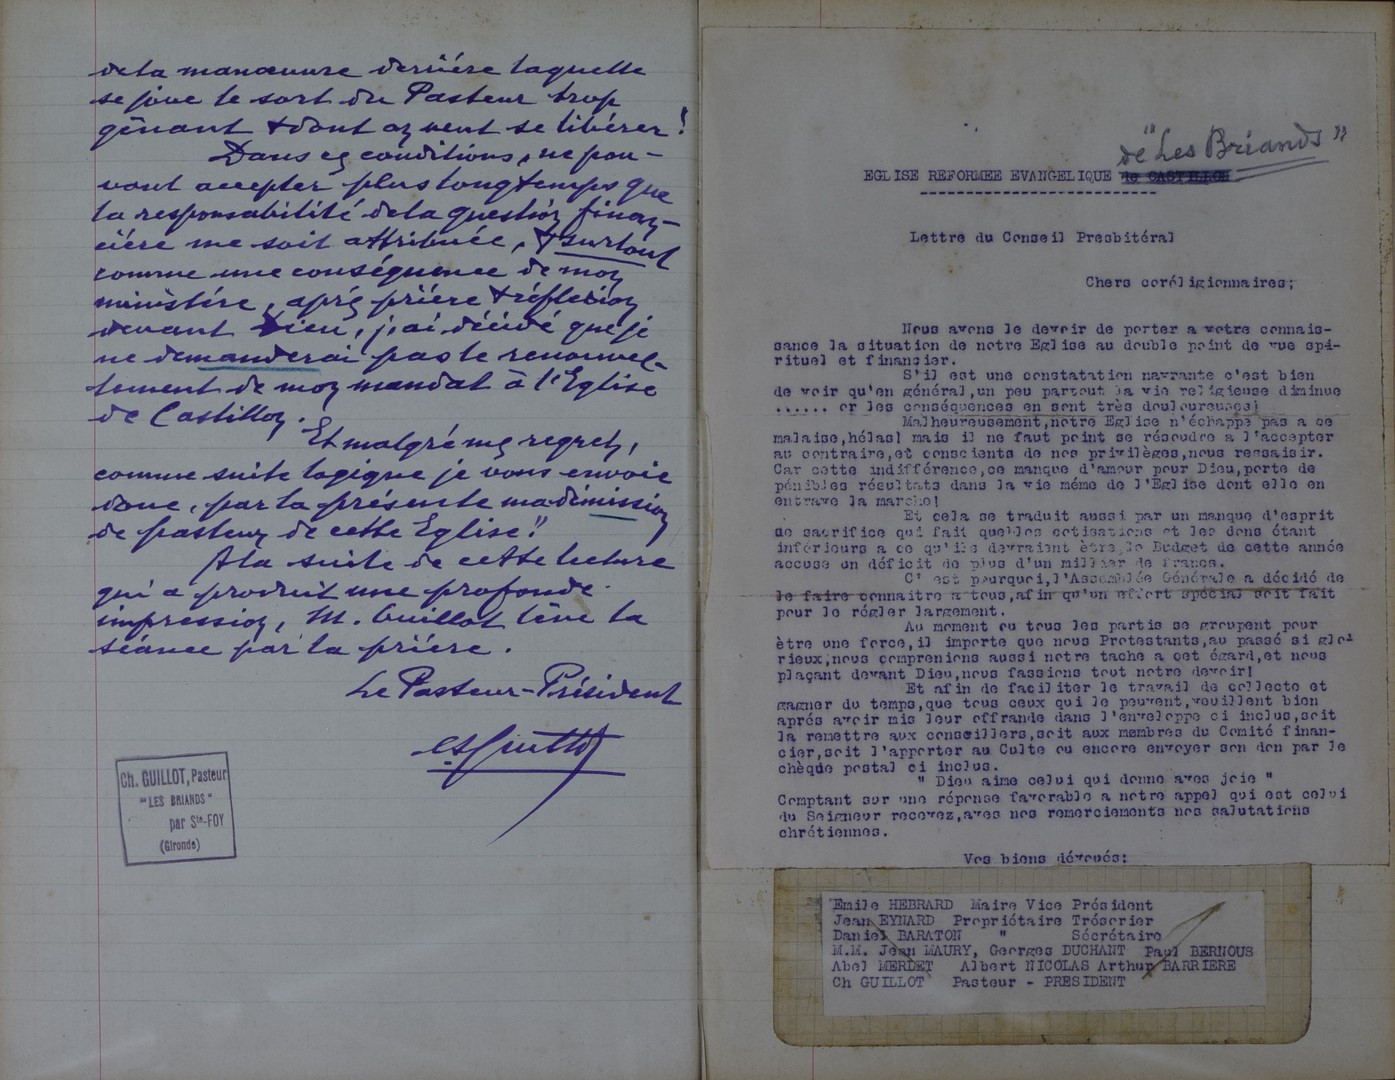 de la manœuvre derrière laquelle
se joue le sort du Pasteur trop
gênant & dont on veut se libérer !
Dans ces conditions, ne pou-
vant accepter plus longtemps que
la responsabilité de la question finan-
cière me soit attribuée, & surtout
comme une conséquence de mon
ministère, après prière & réflexion
devant Dieu, j'ai décidé que je
ne demanderai pas le renouvel-
lement de mon mandat à l'Eglise
de Castillon.
Et malgré mes regrets,
comme suite logique je vous envoie
donc, par la présente ma démission
de pasteur de cette Eglise !!
A la suite de cette lecture
qui a produit une profonde
impression, M. Guillot lève la
séance par la prière.
Le Pasteur-Président
Ch Guillot
Ch. GUILLOT, Pasteur
"LES BRIANDS"
par Ste-FOY
(Gironde)
de "Les Briands"
EGLISE REFORMEE EVANGELIQUE de CASTILLON
Lettre du Conseil Presbitéral
Chers coréligionnaires;
Nous avons le devoir de porter a votre connais-
sance la situation de notre Eglise au double point de vue spi-
rituel et financier.
S'il est une constatation navrante c'est bien
de voir qu'en général,un peu partout la vie religieuse diminue
...... or les conséquences en sont très douloureuses!
Malheureusement,notre Eglise n'échappe pas a ce
malaise,hélas! mais il ne faut point se résoudre a l'accepter
au contraire,et conscients de nos privilèges,nous ressaisir.
Car cette indifférence,ce manque d'amour pour Dieu,porte de
pénibles résultats dans la vie méme de l'Eglise dont elle en
entrave la marche!
Et cela se traduit aussi par un manque d'esprit
de sacrifice qui fait que les cotisations et les dons étant
inférieurs a ce qu'ils devraient être,le Budget de cette année
accuse un déficit de plus d'un millier de Francs.
C' est pourquoi,l'Assemblée Générale a décidé de
le faire connaitre a tous,afin qu'un effort spécial soit fait
pour le régler largement.
Au moment ou tous les partis se groupent pour
être une force,il importe que nous Protestants,au passé si glo-
rieux,nous comprenions aussi notre tache a cet égard,et nous
plaçant devant Dieu,nous fassions tout notre devoir!
Et afin de faciliter le travail de collecte et
gagner du temps,que tous ceux qui le peuvent,veuillent bien
aprés avoir mis leur offrande dans l'enveloppe ci inclus,soit
la remettre aux conseillers,soit aux membres du Comité finan-
cier,soit l'apporter au Culte ou encore envoyer son don par le
chèque postal ci inclus.
" Dieu aime celui qui donne avec joie "
Comptant sur une réponse favorable a notre appel qui est celui
du Seigneur recevez,avec nos remerciements nos salutations
chrétiennes.
Vos biens dévoués:
Emile HEBRARD Maire Vice Président
Jean EYNARD Propriétaire Trésorier
Daniel BARATON " Sécrétaire
M.M. Jean MAURY, Georges DUCHANT Paul BERNOUS
Abel MERLET Albert NICOLAS Arthur BARRIERE
Ch GUILLOT Pasteur - PRESIDENT